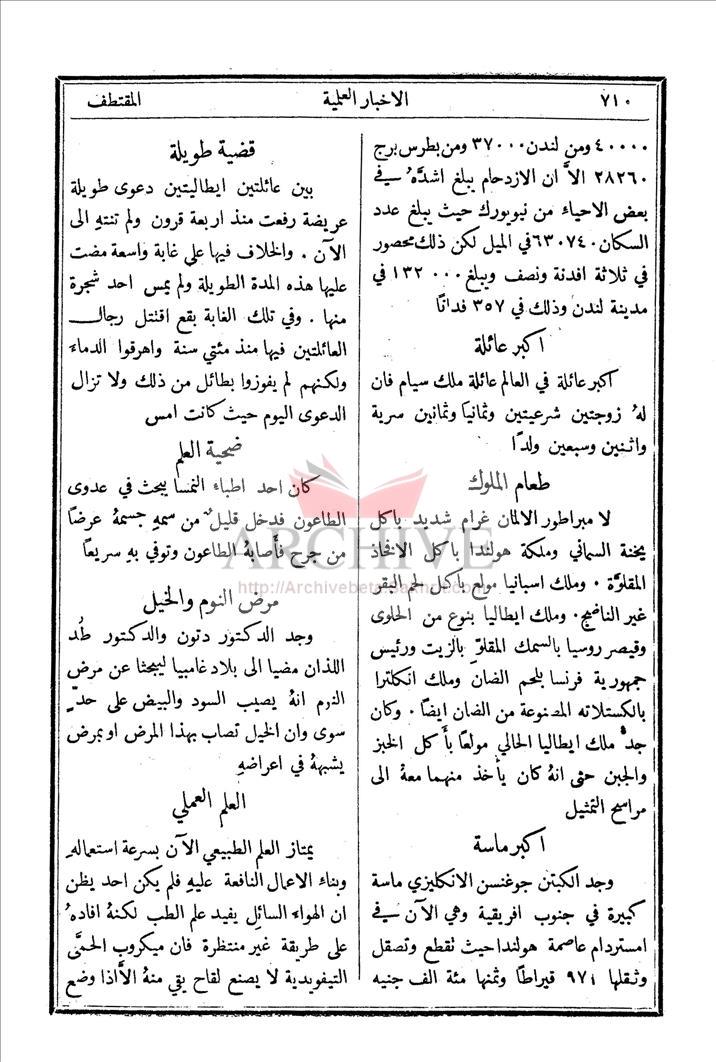 ٧١٠
الاخبار العلمية
المقتطف
٤٠٠٠٠ ومن لندن ٣٧٠٠٠ ومن بطرس برج
٢٨٢٦٠ الاَّ ان الازدحام يبلغ اشدَّهُ في
بعض الاحياء من نيويورك حيث يبلغ عدد
السكان ٦٣٠٧٤٠ في الميل لكن ذلك محصور
في ثلاثة افدنة ونصف ويبلغ ١٣٢٠٠٠ في
مدينة لندن وذلك في ٣٥٧ فدانًا
اكبر عائلة
اكبر عائلة في العالم عائلة ملك سيام فان
لهُ زوجتين شرعيتين وثمانيًا وثمانين سرية
واثنين وسبعين ولدًا
طعام الملوك
لامبراطور الالمان غرام شديد باكل
يخنة السماني وملكة هولندا باكل الانخاذ
المقلوَّة . وملك اسبانيا مولع باكل لحم البقر
غير الناضج . وملك ايطاليا بنوع من الحلوى
وقيصر روسيا بالسمك المقلوّ بالزيت ورئيس
جمهورية فرنسا بلحم الضان وملك انكلترا
بالكستلاته المصنوعة من الضان ايضًا . وكان
جدُّ ملك ايطاليا الحالي مولعًا باَكل الخبز
والجبن حتى انهُ كان يأخذ منهما معهُ الى
مراسح التمثيل
اكبر ماسة
وجد الكبتن جوغنسن الانكليزي ماسة
كبيرة في جنوب افريقية وهي الآن في
امستردام عاصمة هولندا حيث تقطع وتصقل
وثقلها ٩٧١ قيراطًا وثمنها مئة الف جنيه
قضية طويلة
بين عائلتين ايطاليتين دعوى طويلة
عريضة رفعت منذ اربعة قرون ولم تنتهِ الى
الآن . والخلاف فيها على غابة واسعة مضت
عليها هذه المدة الطويلة ولم يمس احد شجرة
منها . وفي تلك الغابة بقع اقتتل رجال
العائلتين فيها منذ مئتي سنة واهرقوا الدماء
ولكنهم لم يفوزوا بطائل من ذلك ولا تزال
الدعوى اليوم حيث كانت امس
ضحية العلم
كان احد اطباء النمسا يبحث في عدوى
الطاعون فدخل قليلٌ من سمهِ جسمهُ عرضًا
من جرح فأصابهُ الطاعون وتوفي بهِ سريعًا
مرض النوم والخيل
وجد الدكتور دتون والدكتور طُد
اللذان مضيا الى بلاد غامبيا ليبحثا عن مرض
النوم انهُ يصيب السود والبيض على حدٍّ
سوى وان الخيل تصاب بهذا المرض او بمرض
يشبههُ في اعراضهِ
العلم العملي
يمتاز العلم الطبيعي الآن بسرعة استعمالهِ
وبناء الاعمال النافعة عليهِ فلم يكن احد يظن
ان الهواء السائل يفيد علم الطب لكنهُ افادهُ
على طريقة غير منتظرة فان ميكروب الحمَّى
التيفويدية لا يصنع لقاح يقي منهُ الاَّ اذا وضع
ARCHIVE